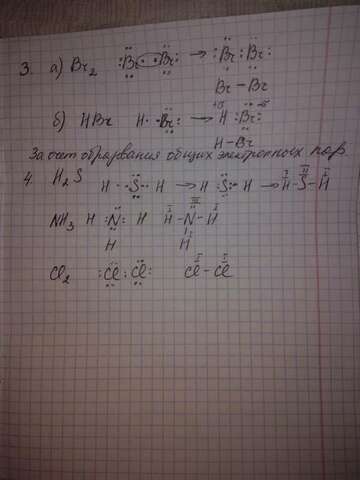 3. а) Br2 :Br··Br: → :Br:Br:
Br − Br
б) HBr H· ·Br: → H :Br:
H − Br
За счет образвания общих электронных пар.
4. H2S H ··S·· H → H :S: H → H − S − H
NH3 H :N: H H − N − H
H H
Cl2 :Cl:Cl: Cl − Cl